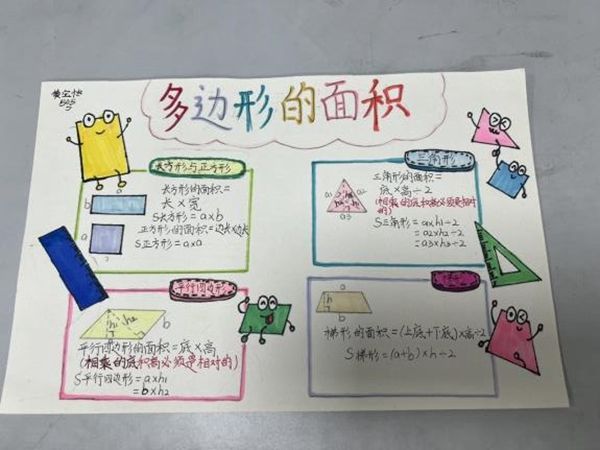 多边形的面积
黄宝怡
505
长方形与正方形
a
b
a
长方形的面积=
长×宽
S长方形=a×b
正方形的面积=边长×边长
S正方形=a×a
三角形
a1
a2
a3
三角形的面积=
底×高÷2
(相乘的底和高必须是相对的)
S三角形=a×h1÷2
=a2×h2÷2
=a3×h3÷2
平行四边形
a
b
h1
h2
平行四边形的面积=底×高
(相乘的底和高必须是相对的)
S平行四边形=a×h1
=b×h2
a
b
梯形的面积=(上底+下底)×高÷2
S梯形=(a+b)×h÷2